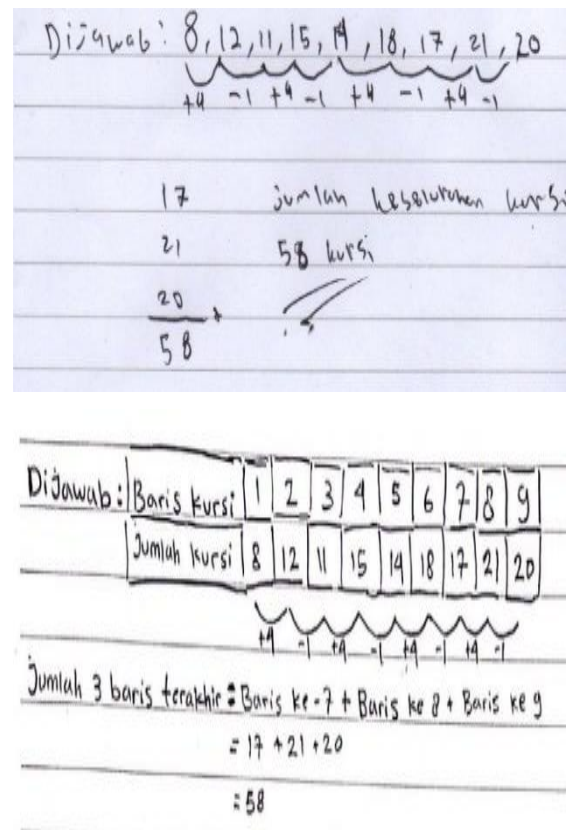 Dijawab: 8, 12, 11, 15, 14, 18, 17, 21, 20
+4 -1 +4 -1 +4 -1 +4 -1
17 jumlah keseluruhan kursi
21 58 kursi
20 +
58
Dijawab: Baris kursi 1 2 3 4 5 6 7 8 9
Jumlah kursi 8 12 11 15 14 18 17 21 20
+4 -1 +4 -1 +4 -1 +4 -1
Jumlah 3 baris terakhir = Baris ke-7 + Baris ke 8 + Baris ke 9
= 17 + 21 + 20
= 58